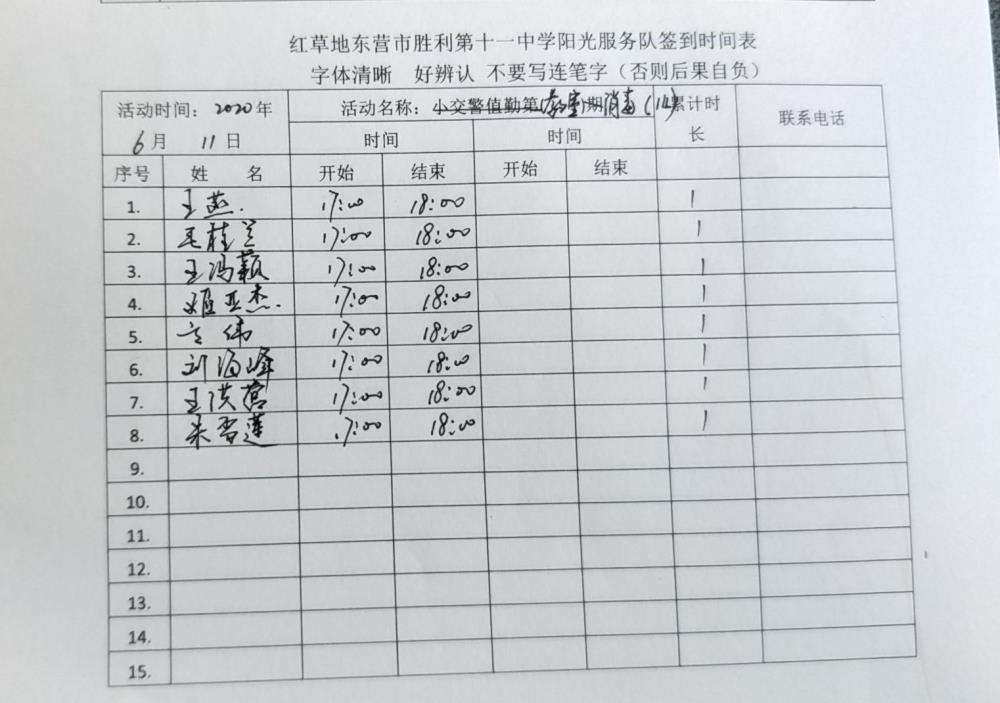 红草地东营市胜利第十一中学阳光服务队签到时间表
字体清晰 好辨认 不要写连笔字（否则后果自负）
活动时间：2020年 活动名称：小交警值勤第 期 教室消毒（14） 累计时长 联系电话
6月 11日 时间 时间
序号 姓名 开始 结束 开始 结束
1. 王燕. 17:00 18:00 1
2. 毛桂兰 17:00 18:00 1
3. 王冯颖 17:00 18:00 1
4. 姬亚杰. 17:00 18:00 1
5. 伟 17:00 18:00 1
6. 刘海峰 17:00 18:00 1
7. 王洪营 17:00 18:00 1
8. 朱香莲 17:00 18:00 1
9.
10.
11.
12.
13.
14.
15.